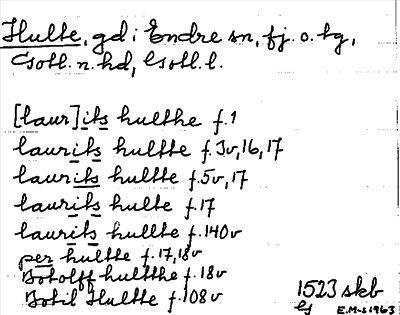 Hulte, gd i Endre sn, fj. o. tg,
Gotl. n. hd, Gotl. l.
[laur]its hulthe f. 1
laurits hultte f. 3v, 16, 17
laurits hultte f. 5v, 17
laurits hulte f. 17
laurits hultte f. 140v
per hultte f. 17, 18v
Botolff hultthe f. 18v
Botil Hultte f. 108v
1523 skb
G E.M-s 1963